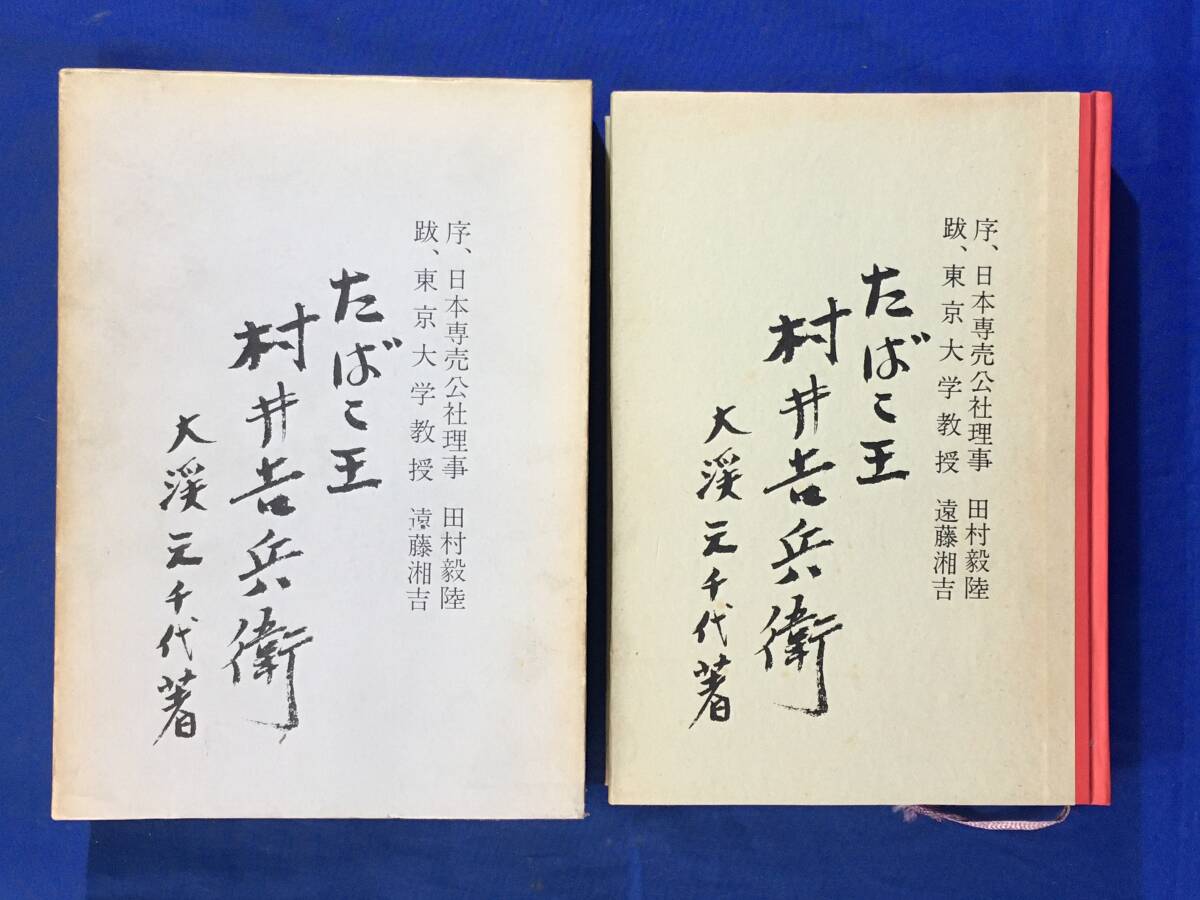 序、日本専売公社理事 田村毅陸
跋、東京大学教授 遠藤湘吉
たばこ王
村井吉兵衛
大渓元千代著
序、日本専売公社理事 田村毅陸
跋、東京大学教授 遠藤湘吉
たばこ王
村井吉兵衛
大渓元千代著